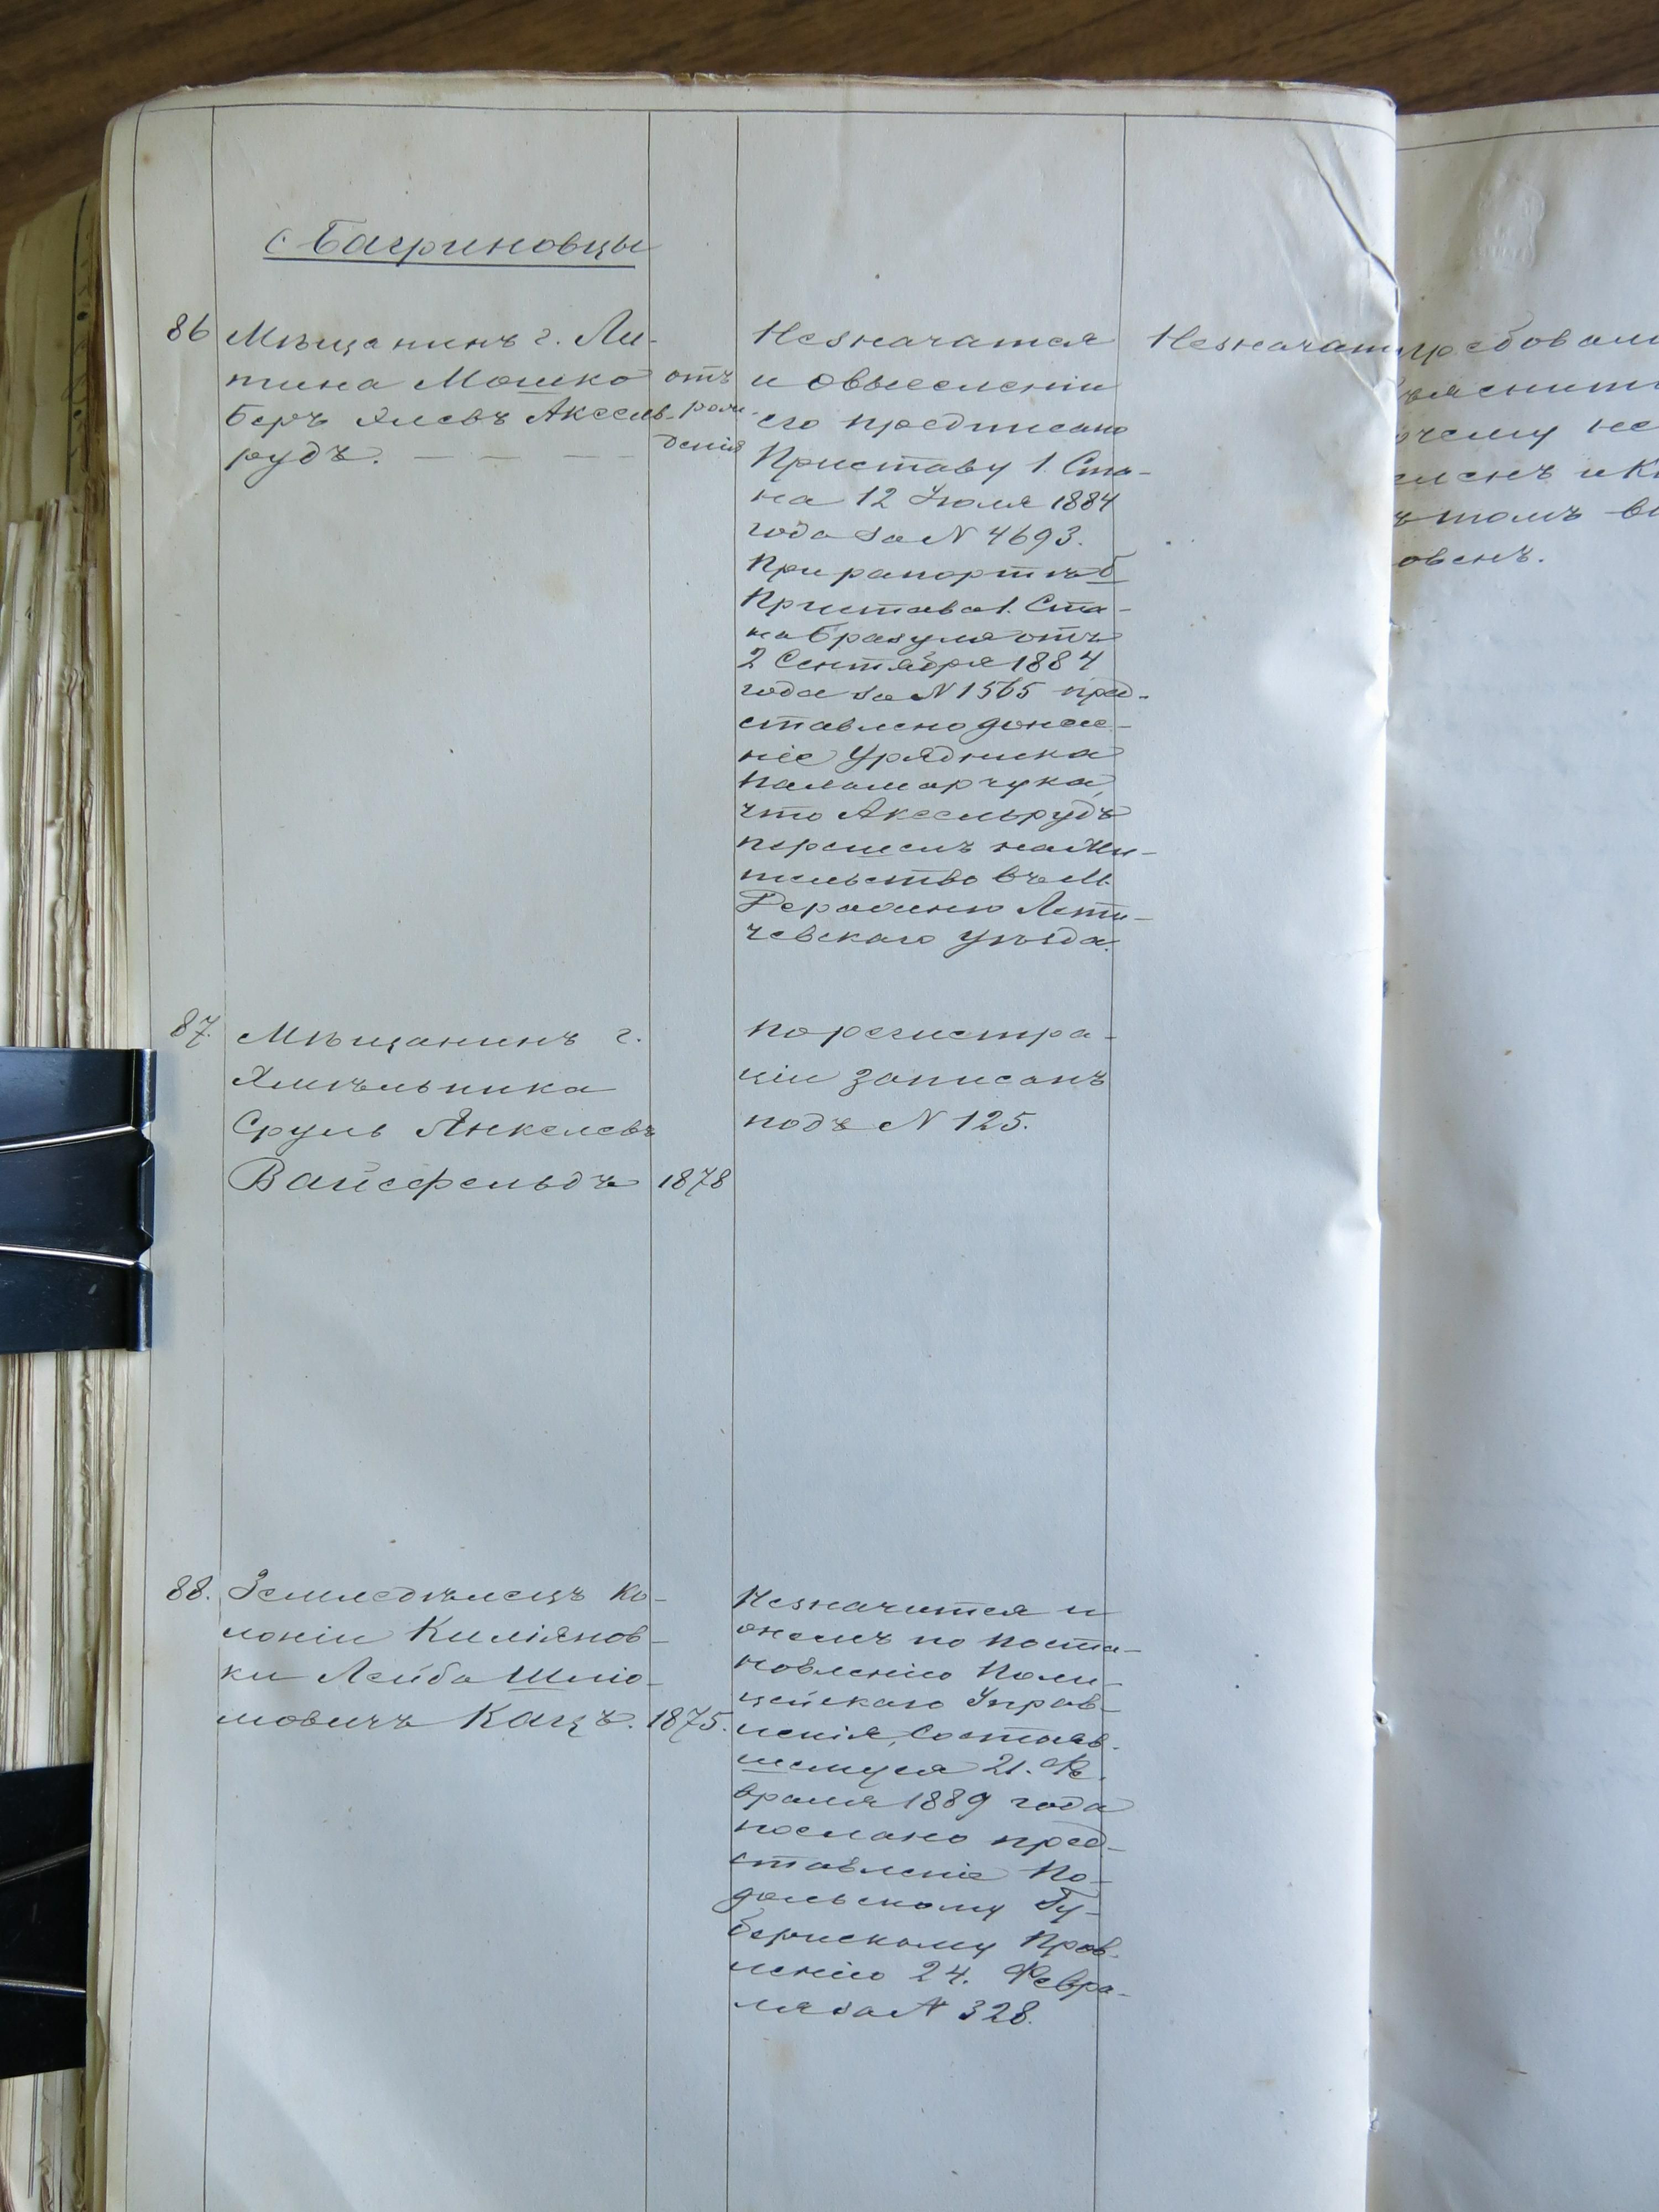 с Багриновцы
86 Мѣщанинъ г. Ли-
тина Мошко
Беръ Хлевъ Аксель-
рудъ. — — — —
отъ
рож-
денія
Незначатся
и овыселеніи
его предписано
Приставу 1. Ста-
на 12 Іюля 1884
года за N 4693.
При рапортѣ б
Пристава 1. Ста-
на Бразуля отъ
2 Сентября 1884
года за N 1565 пред-
ставлено донесе-
ніе Урядника
Паламарчука,
что Аксельрудъ
перешелъ на жи-
тельство въ м.
Деражню Лети-
чевскаго уѣзда.
Незначат
87. Мѣщанинъ г.
Хмѣльника
Сруль Янкелевъ
Вайсфельдъ 1878
по регистра-
ціи записанъ
подъ N 125.
88. Земледѣлецъ ко-
лоніи Киліянов-
ки Лейба Шліо-
мовичъ Кацъ. 1875.
Незначится и
онемъ по поста-
новленію Поли-
цейскаго Управ-
ленія, состояв-
шемуся 21. Фе-
враля 1889 года
послано пред-
ставленіе По-
дольскому Гу-
бернскому Прав-
ленію 24. Февра-
ля за N 328.
требовали
чему не
томъ
овенъ.